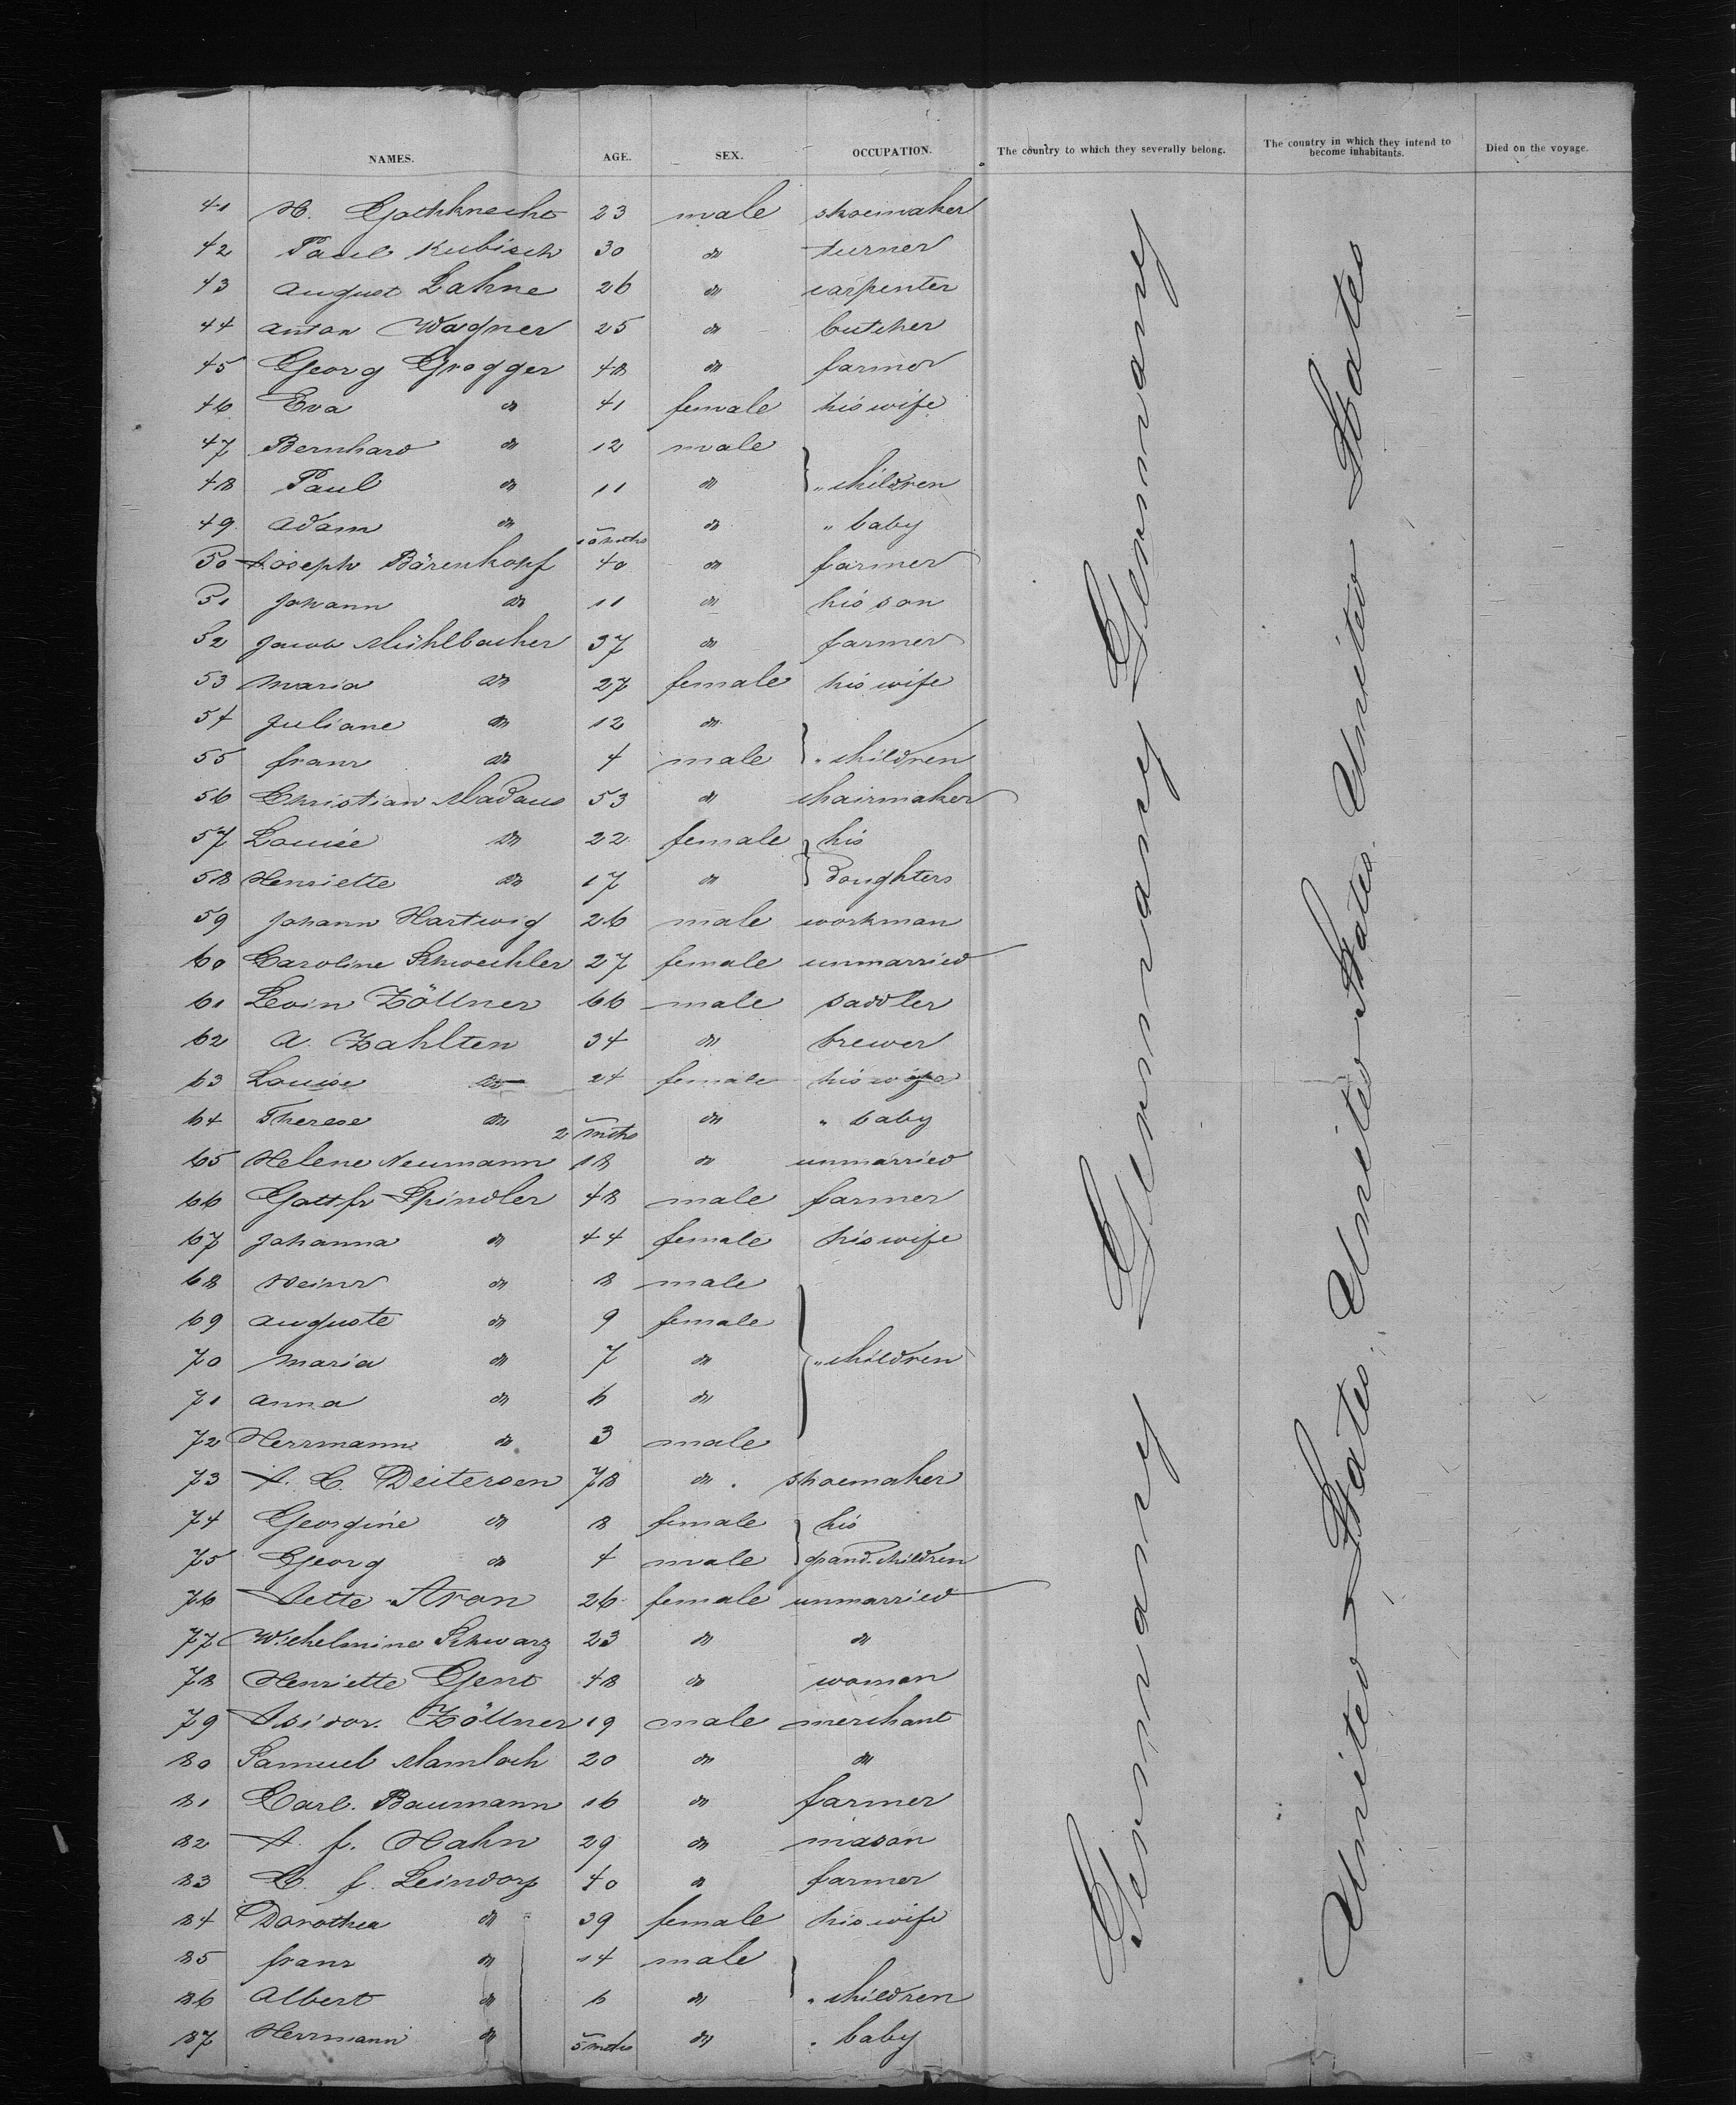 NAMES. AGE. SEX. OCCUPATION. The country to which they severally belong. The country in which they intend to become inhabitants. Died on the voyage.
41 H. Gothknecht 23 male shoemaker
42 Paul Kubisch 30 do turner
43 August Lahne 26 do carpenter
44 Anton Wagner 25 do butcher
45 Georg Grogger 48 do farmer
46 Eva do 41 female his wife
47 Bernhard do 12 male
48 Paul do 11 do } " children
49 Adam do 10 mths do " baby
50 Joseph Bärenkopf 40 do farmer
51 Johann do 11 do his son
52 Jacob Mühlbacher 37 do farmer
53 Maria do 27 female his wife
54 Juliane do 12 do
55 Franz do 4 male } " children
56 Christian Madaus 53 do chairmaker
57 Louise do 22 female } his
58 Henriette do 17 do daughters
59 Johann Hartwig 26 male workman
60 Caroline Schwechler 27 female unmarried
61 Levin Zöllner 66 male saddler
62 A. Zahlten 34 do brewer
63 Louise do 24 female his wife
64 Therese do 2 mths do " baby
65 Helene Neumann 18 do unmarried
66 Gottfr Spindler 48 male farmer
67 Johanna do 44 female his wife
68 Heinr do 8 male
69 Auguste do 9 female
70 Maria do 7 do } " children
71 Anna do 6 do
72 Herrmann do 3 male
73 A. C. Deitersen 78 do shoemaker
74 Georgine do 8 female } his
75 Georg do 4 male grand-children
76 Jette Aron 26 female unmarried
77 Wilhelmine Schwarz 23 do do
78 Henriette Gent 48 do woman
79 Isidor. Zöllner 19 male merchant
80 Samuel Mamloch 20 do do
81 Carl. Baumann 16 do farmer
82 A. F. Hahn 29 do mason
83 C. F. Leindorf 40 do farmer
84 Dorothea do 39 female his wife
85 Franz do 14 male
86 Albert do 6 do } " children
87 Herrmann do 5 mths do " baby
Germany Germany Germany Germany
United States. United States. United States